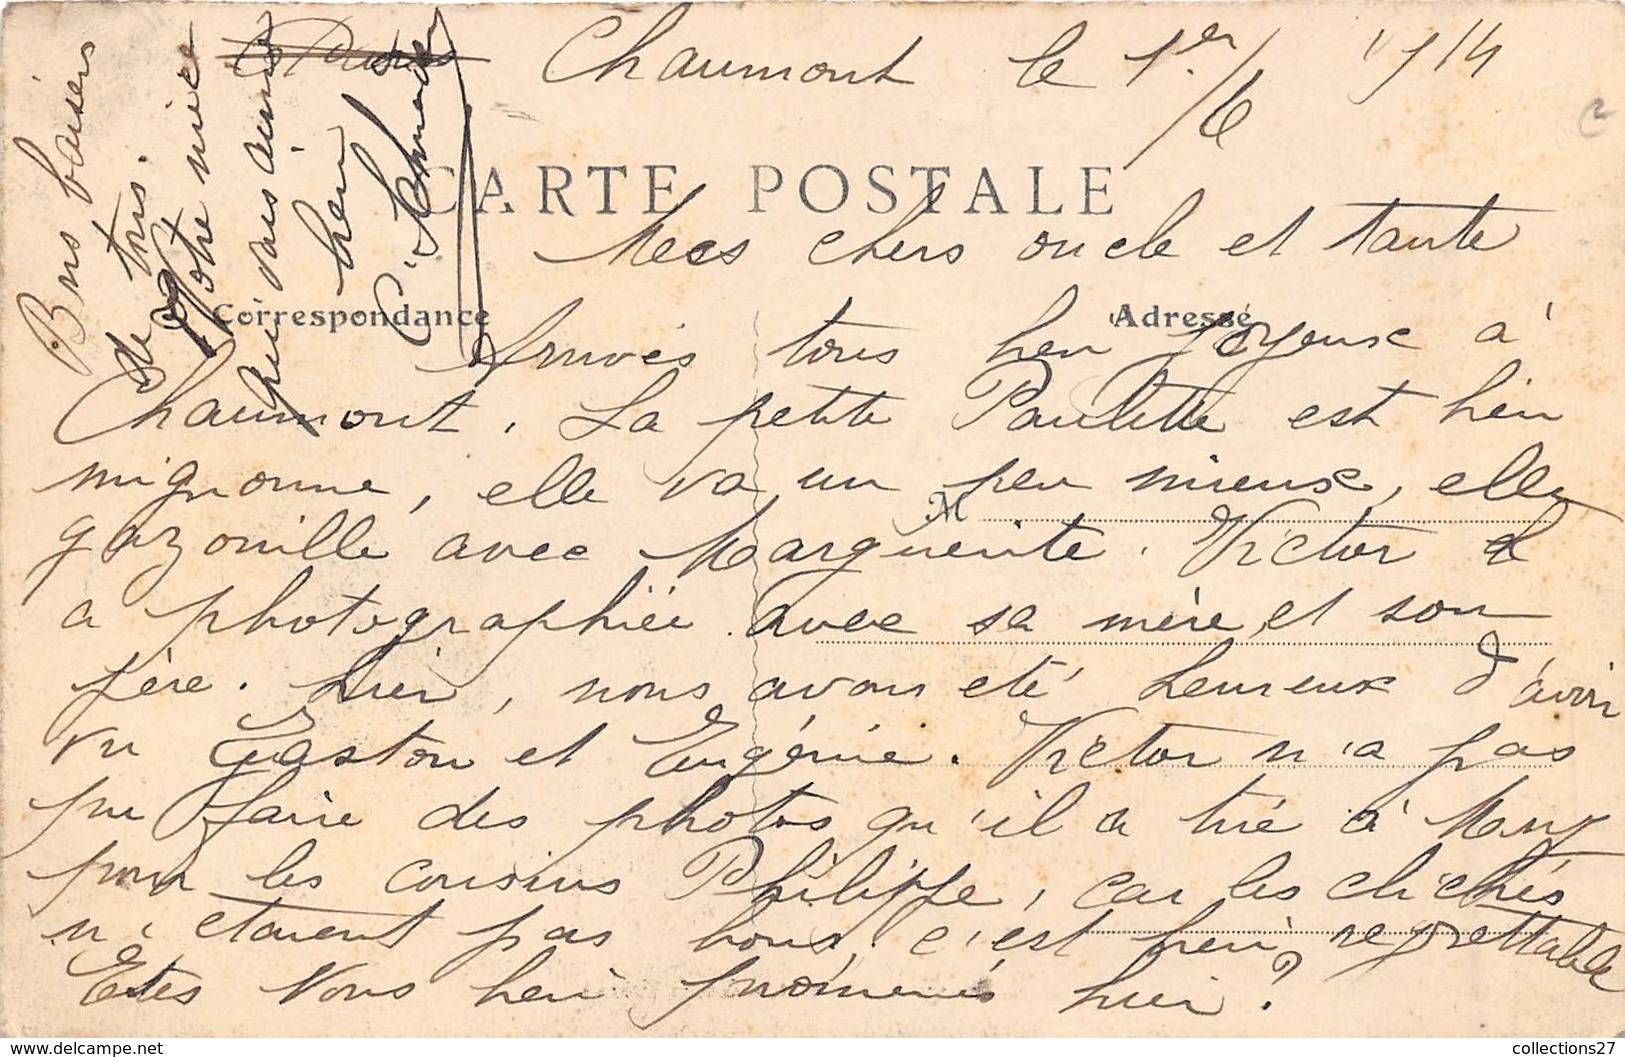 Chaumont le 1er/6 1914
CARTE POSTALE
Mes chers oncle et tante
Correspondance
Adresse
Arrivés tous bien joyeux à
Chaumont. La petite Paulette est bien
mignonne, elle va un peu mieux, elle
M
gazouille avec Marguerite. Victor
a photographiée avec sa mère et son
père. hier, nous avons été heureux d'avoir
vu Gaston et Eugénie. Victor n'a pas
pu faire des photos qu'il a tiré à
pour les cousins Philippe, car les clichés
n'étaient pas bons, c'est bien regrettable
Êtes vous bien promenés hier?
Bons baisers
de tous.
Votre nièce
qui vous aime
bien
C.
collections27